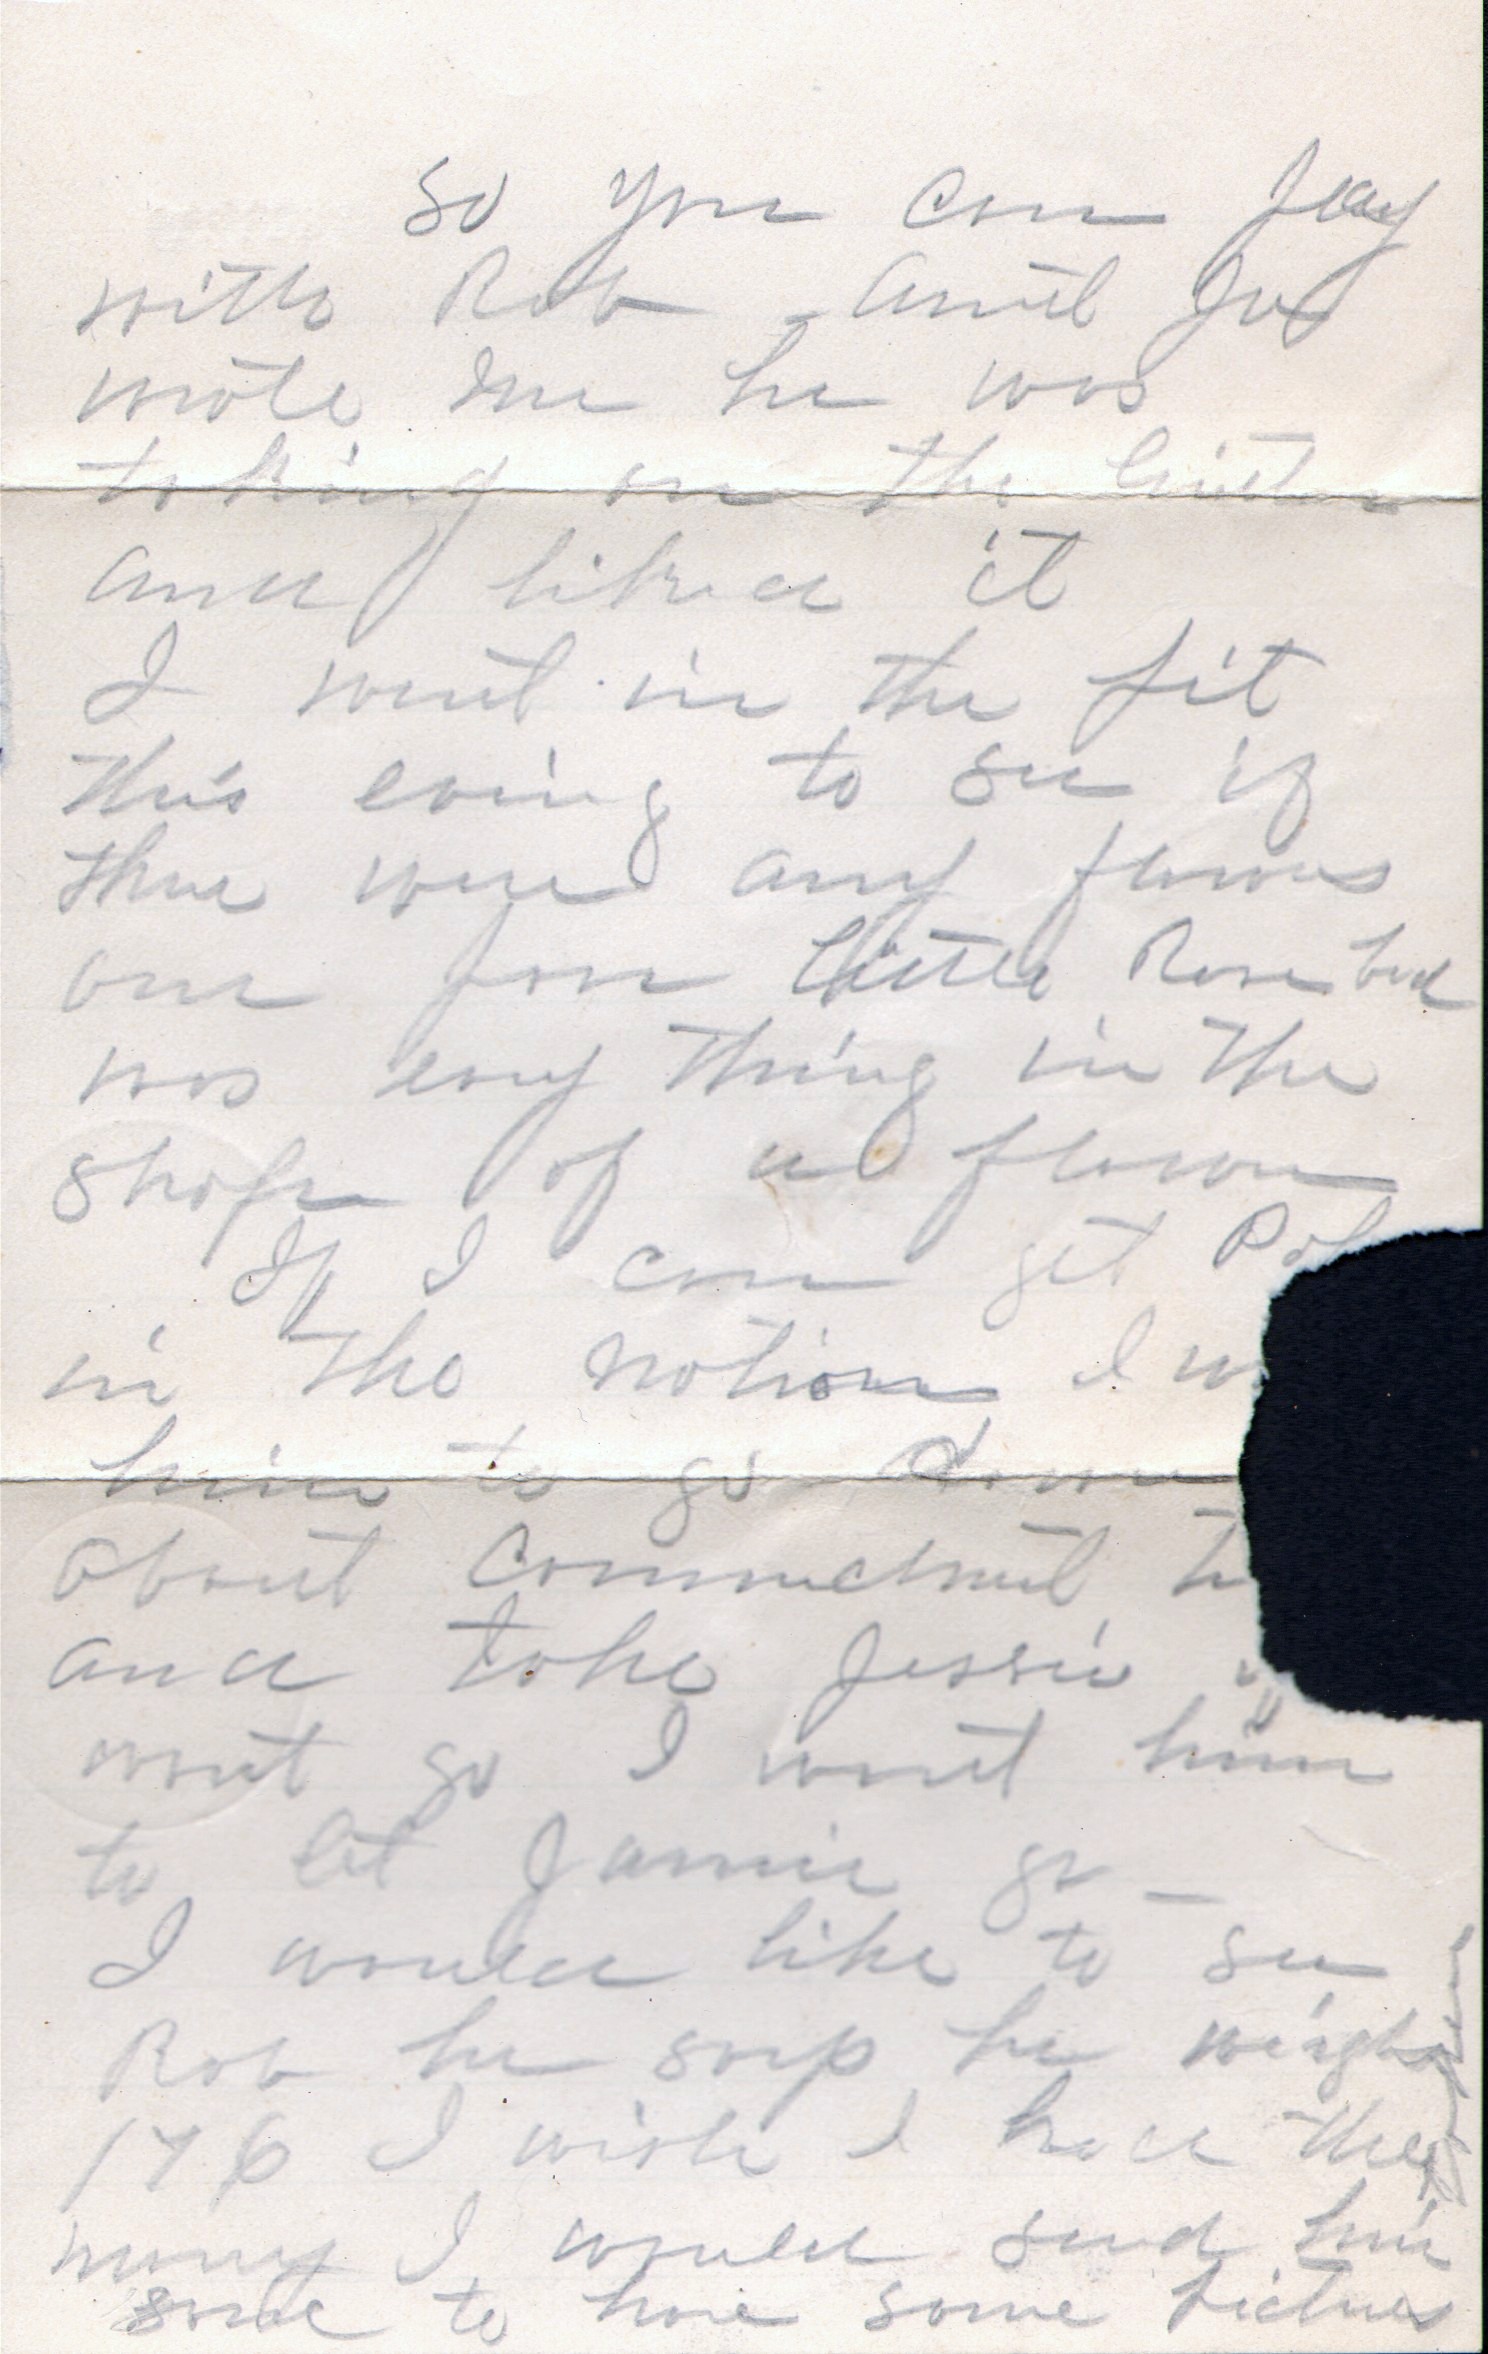 so you can play
with Rob Aunt Jo
wrote me he was
taking on the Guitar
and liked it
I went in the pit
this eving to see if
there were any flowers
one poor little Rose bud
was evry thing in the
shape of a flower
If I can get Pa
in the notion I w
him to go down
about Commencment t
and take Jessie
wont go I want him
to let Jamie go _
I would like to see
Rob he says he weighs
146 I wish I had the
mony I would send him
some to have some pictures